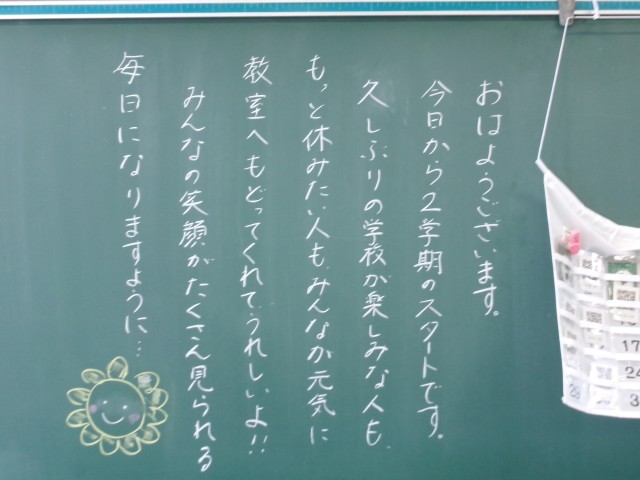 おはようございます。
今日から2学期のスタートです。
久しぶりの学校が楽しみな人も、
もっと休みたい人も、みんなが元気に
教室へもどってくれて、うれしいよ!!
みんなの笑顔がたくさん見られる
毎日になりますように…
17
24
3